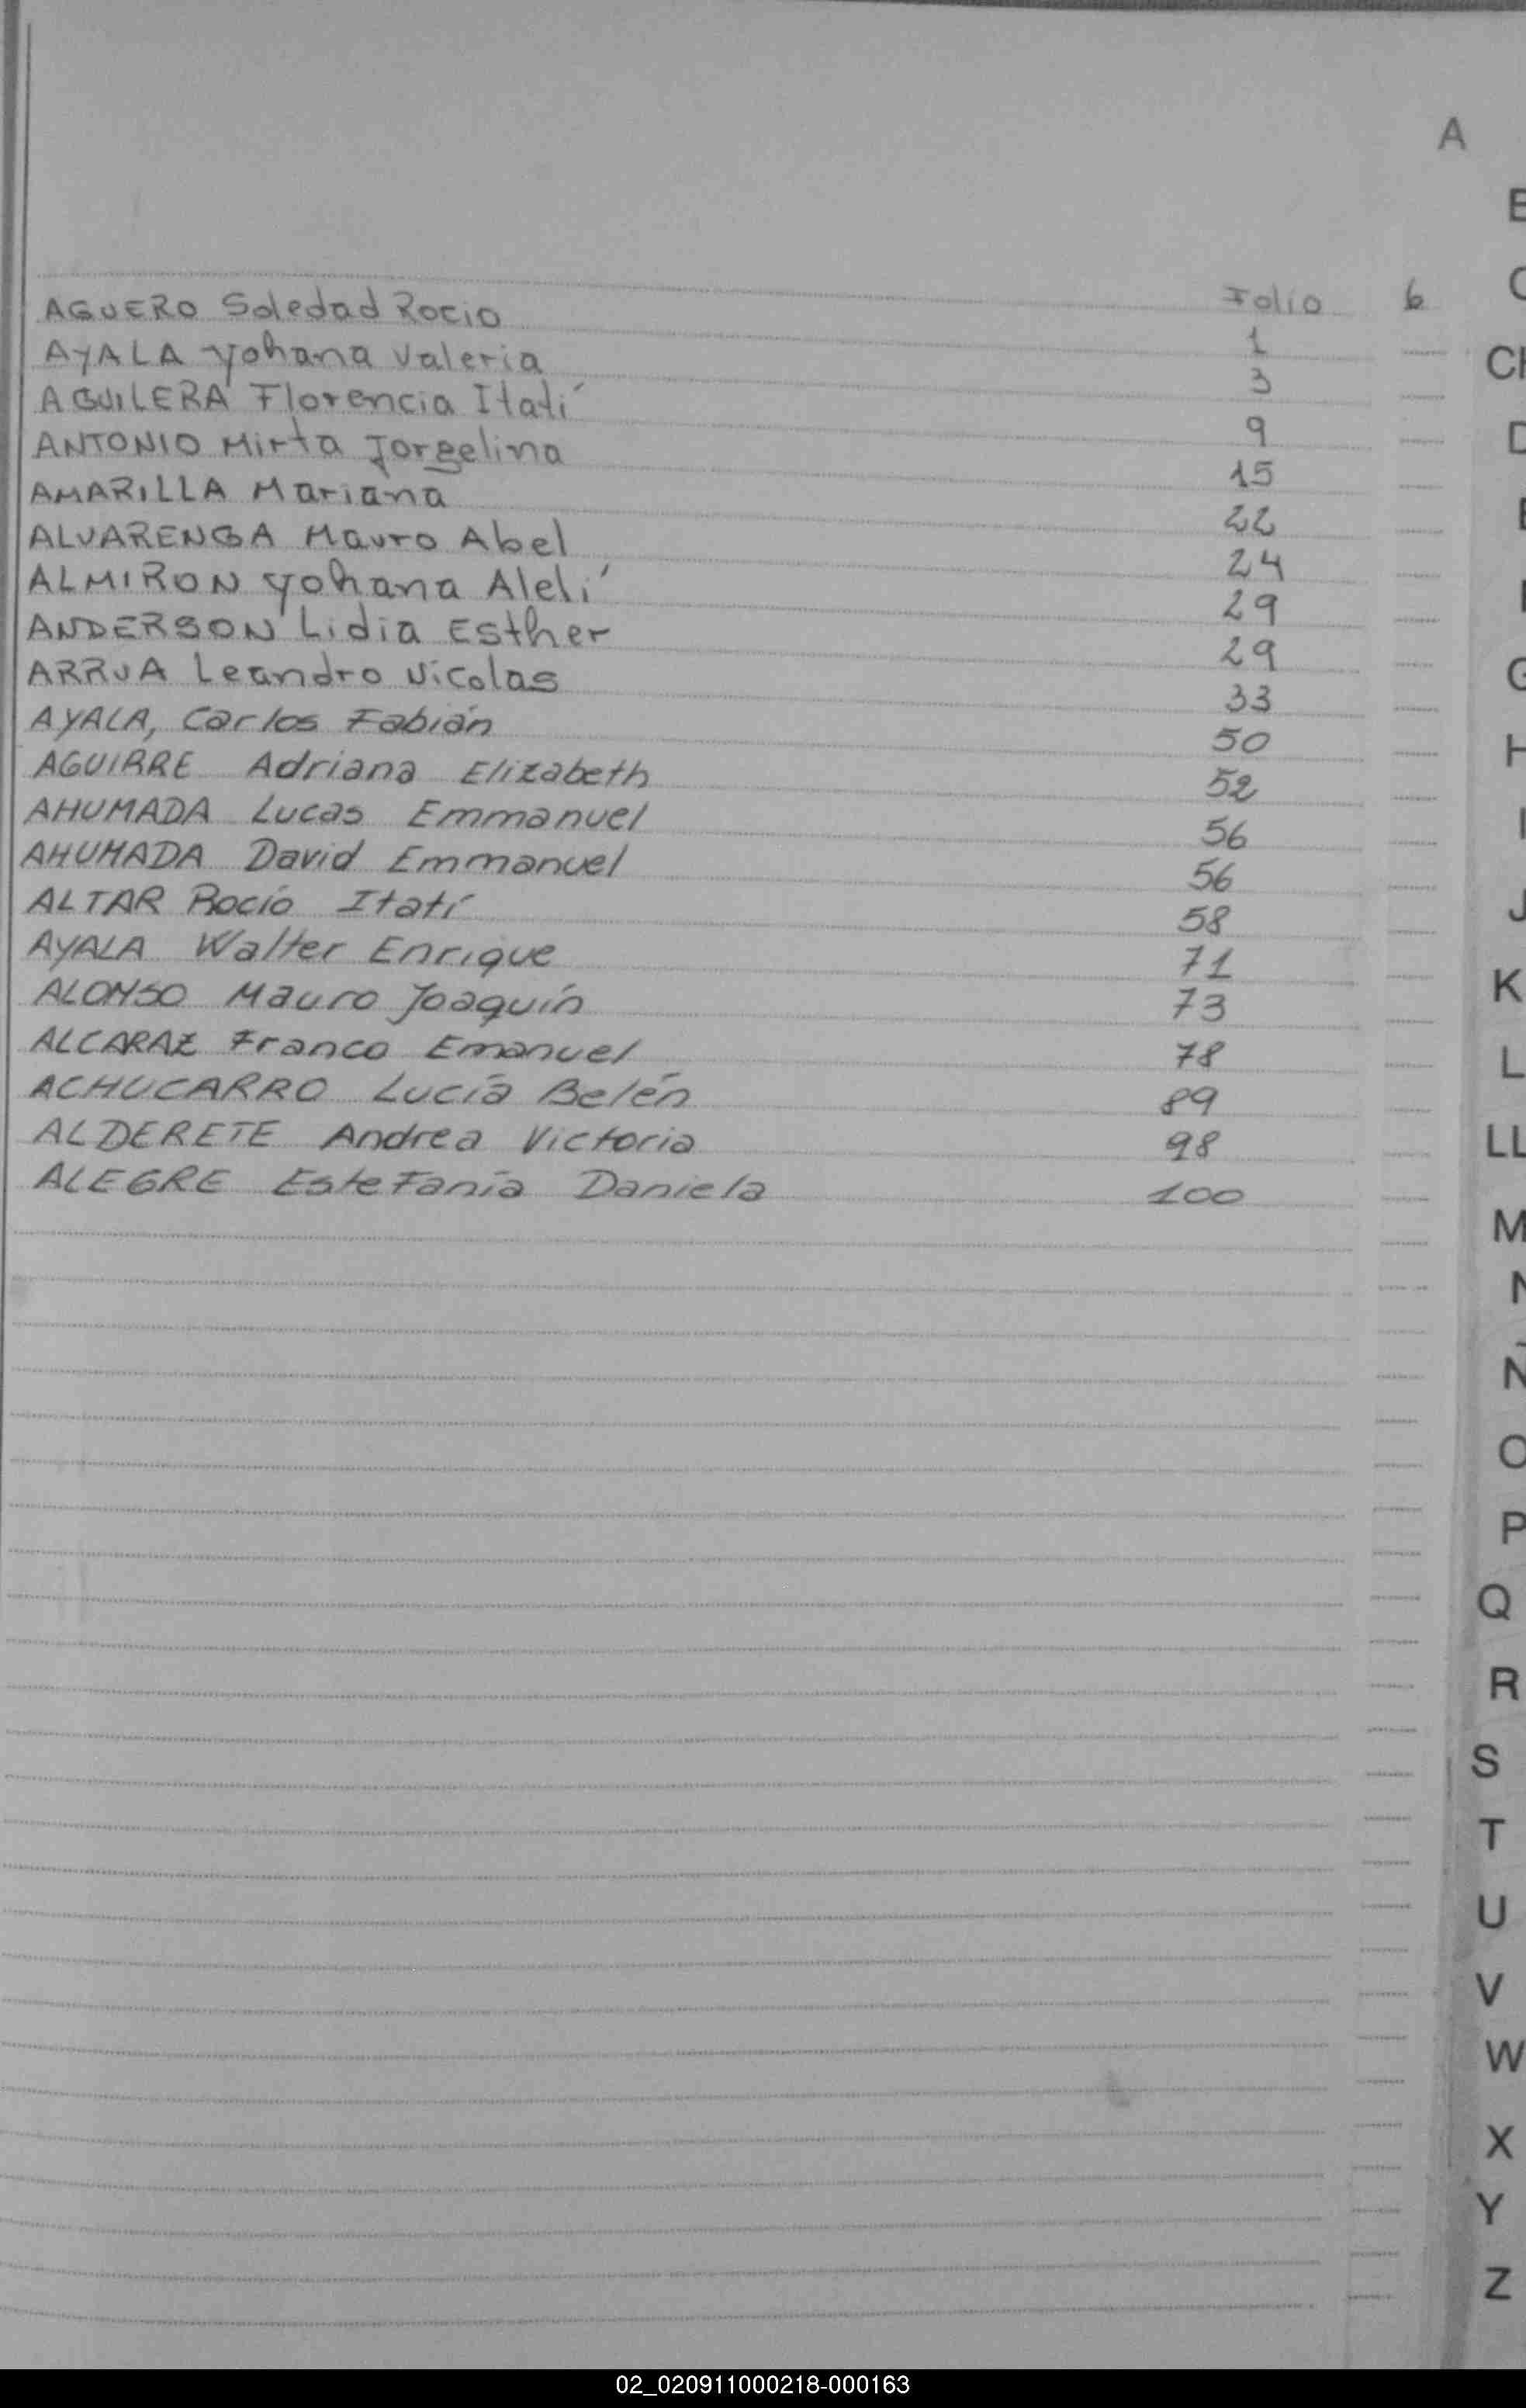 A
Folio 6
AGUERO Soledad Rocio 1
AYALA Yohana Valeria 3
AGUILERA Florencia Itatí 9
ANTONIO Mirta Jorgelina 15
AMARILLA Mariana 22
ALVARENGA Mauro Abel 24
ALMIRON Yohana Alelí 29
ANDERSON Lidia Esther 29
ARRUA Leandro Nicolas 33
AYALA, Carlos Fabián 50
AGUIRRE Adriana Elizabeth 52
AHUMADA Lucas Emmanuel 56
AHUMADA David Emmanuel 56
ALTAR Rocío Itatí 58
AYALA Walter Enrique 71
ALONSO Mauro Joaquín 73
ALCARAZ Franco Emanuel 78
ACHUCARRO Lucía Belén 89
ALDERETE Andrea Victoria 98
ALEGRE Estefanía Daniela 100
B
C
CH
D
E
F
G
H
I
J
K
L
LL
M
N
Ñ
O
P
Q
R
S
T
U
V
W
X
Y
Z
02_020911000218-000163